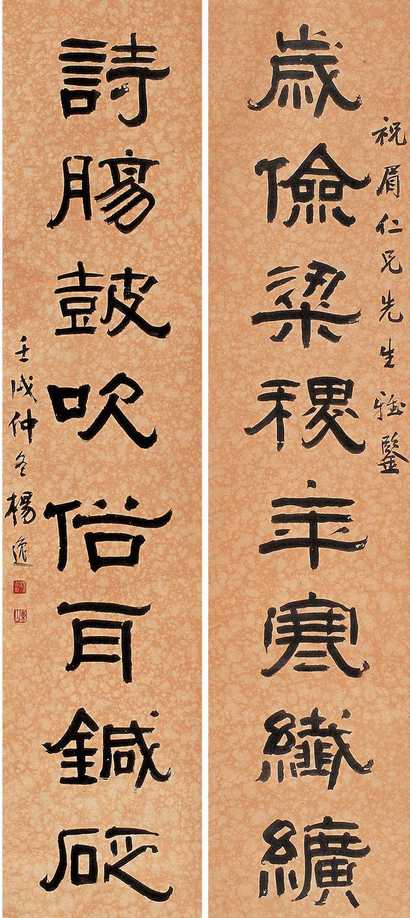 祝眉仁兄先生雅鑒
歲儉梁稷年寒纖纊
詩腸鼓吹俗耳鍼砭
壬戌仲冬楊逸